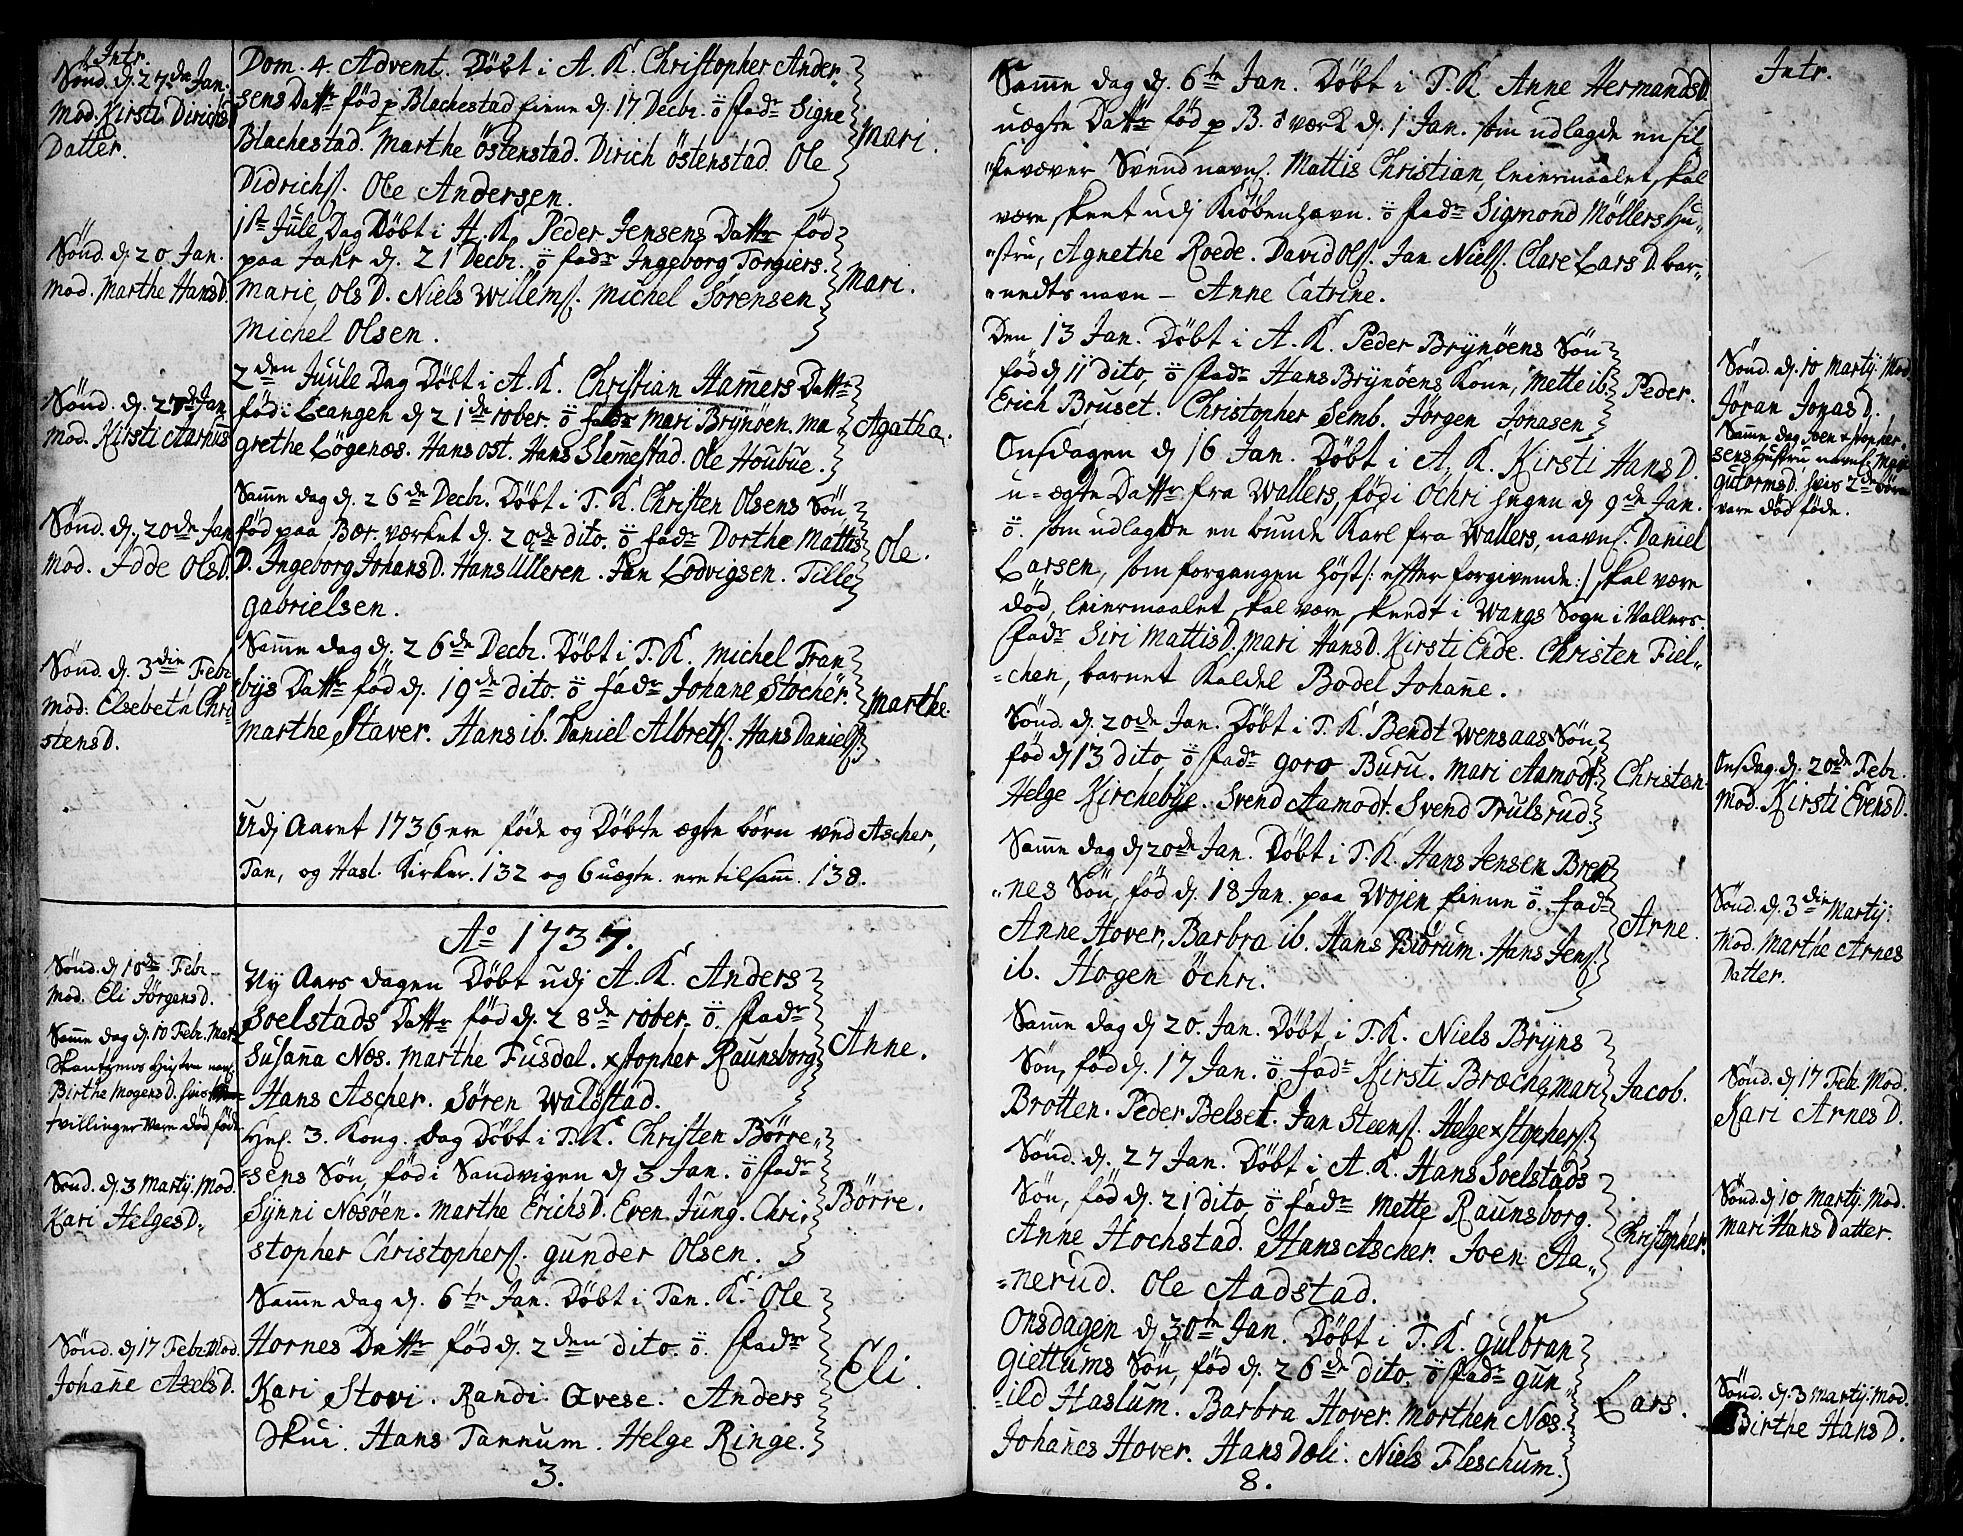 Intr.
Sönd. d. 27de Jan.
Mod. Kirsti Dirichs
Datter.
Sönd. d. 20 Jan.
Mod. Marthe HansD.
Sönd. d. 27de Jan
Mod. Kirsti Aarhus
Sönd. d. 20de Jan
Mod. Idde OlsD.
Sönd. d. 3die Febr
Mod: Elsebeth Chri
stensD.
Sönd. d. 10de Febr
Mod. Eli JörgensD.
Samme dag d. 10 Febr. Mats
Hustru nafl.
Birthe MogensD. hvis
tvillinger vare död föde
Sönd. d. 3 Martij. Mod.
Kari HelgesD.
Sönd. d. 17 Febr. Mod.
Johañe AxelsD.
Dom. 4. Advent. Döbt i A. K. Christopher Ander-
sens Dattr föd p Blachestad Eiene d. 17 Decbr. ö fadr Signe
Blachestad. Marthe Östenstad. Dirich Östenstad. Ole
Didrichs. Ole Andersen.
Mari.
1ste Jule Dag Döbt i H. K. Peder Jensens Dattr föd
paa Jahr d. 21 Decbr. ö fadr Ingeborg Torgiers.
Marie OlsD. Niels Willems. Michel Sörensen
Michel Olsen.
Mari.
2den Juule Dag Döbt i A. K. Christian Hamers Dattr
föd i Leangen d 21de xber. ö fadr Mari Brynöen. Ma
grethe Lögenæs. Hans Ost. Hans Slemestad. Ole Houbue.
Agatha.
Samme dag d. 26de Decbr. Döbt i T. K. Christen Olsens Sön
föd paa Bær. værket d. 20de dito. ö fadr Dorthe Mattis
D. Ingeborg JohansD. Hans Ulleren. Jan Lodvigsen. Tille
Gabrielsen.
Ole.
Samme dag d. 26de Decbr. Döbt i T. K. Michel Fran
bijs Dattr föd d. 19de dito. ö fadr Johane Stocher.
Marthe Staver. Hans ib. Daniel Albrets. Hans Daniels.
Marthe.
Udj Aaret 1736 ere föde og Döbte ægte börn ved Ascher,
Tan, og Hasl. Kirker. 132 og 6 uægte. ere tilsam. 138.
Ao 1737.
Ny Aars dagen Döbt udj A. K. Anders
Soelstads Dattr föd d. 28de xber. ö. fadr
Susaña Næs. Marthe Fusdal. xstopher Raunsborg
Hans Ascher. Sören Waldstad.
Anne.
Hel. 3. Kong. Dag Döbt i T. K. Christen Börre-
sens Sön, föd i Sandvigen d 3 Jan. ö fadr
Synni Næsöen. Marthe ErichsD. Even Jung. Chri-
stopher Christophers. Gunder Olsen.
Börre.
Samme dag d. 6te Jan. Döbt i Tan. K. Ole
Hornes Dattr föd d. 2den dito. ö. fadr
Kari Stovi. Randi Ovese. Anders
Skui. Hans Tannum. Helge Ringe.
Eli.
3.
Samme dag d. 6te Jan. Döbt i T. K Anne HermandsD.
uægte Dattr föd p B. værk d. 1 Jan. som udlagde en sil
kevæver Svend navnl. Mattis Christian, leiermaalet skal
være skeet udj Kiöbenhavn. ö fadr Sigmond Möllers Hu-
stru, Agnethe Roede. David Ols. Jan Niels. Clare LarsD. bar-
nedts navn - Anne Catrine.
Den 13 Jan. Döbt i A. K. Peder Brynöens Sön
föd d 11 dito, ö fadr Hans Brynöens Kone, Mette ib.
Erich Bruset. Christopher Semb. Jörgen Jonasen
Peder.
Onsdagen d 16 Jan. Döbt i A. K. Kirsti HansD.
u-ægte Dattr fra Wallers, föd i Öchri Hegen d 9de Jan.
ö. som udlagde en bunde Karl fra Wallers, navnl. Daniel
Larsen, som forgangen Höst /: efter forgivende :/ skal være
död, leiermaalet skal være skeedt i Wangs Sogn i Vallers.
fadr Siri MattisD. Mari HansD. Kirsti Ende. Christen Fiel-
chen, barnet Kaldet Bodel Johañe.
Sönd. d. 20de Jan. Döbt i T. K. Bendt Wensaas Sön
föd d 13 dito ö fadr Goro Buru. Mari Aamodt.
Helge Kirchebye. Svend Aamodt. Svend Trulsrud.
Christen
Samme dag d 20de Jan. Döbt i T. K. Hans Jensen Bren
nes Sön, föd d. 18 Jan. paa Wojen Eiene ö. fadr
Anne Hover, Barbra ib. Hans Biörum. Hans Jens.
ib. Hogen Öchri.
Arne.
Samme dag d 20. Jan. Döbt i T. K. Niels Bryns
Sön, föd d. 17 Jan. ö fadr Kirsti Bræche, Mari
Brötten. Peder Belset. Jan Steens. Helge xstophers.
Jacob.
Sönd. d. 27 Jan. Döbt i A. K. Hans Soelstads
Sön, föd d. 21 dito, ö fadr Mette Raunsborg.
Anne Hochstad. Hans Ascher. Joen Aa-
nerud. Ole Aadstad.
Christopher.
Onsdagen d 30te Jan. Döbt i T. K. Gulbran
Giettums Sön, föd d. 26de dito. ö fadr Gun-
ild Haslum. Barbra Hover. Morthen Næs.
Johañes Hover. Hans Dæli. Niels Fleschum.
Lars.
8.
Intr.
Sönd. d. 10 Martij. Mod
Jöran JonasD.
Samme dag Joen xstopher-
sens Hustru navnl. Mari
GutormsD. hvis 2de börn
vare död föde.
Onsdag. d. 20de Febr.
Mod. Kirsti EvensD.
Sönd. d. 3die Martij.
Mod. Marthe Arnes
Datter.
Sönd. d 17 Febr Mod.
Kari ArnesD.
Sönd. d 10 Martij. Mod
Mari Hans Datter.
Sönd. d. 3 Martij. Mod.
Birthe HansD.